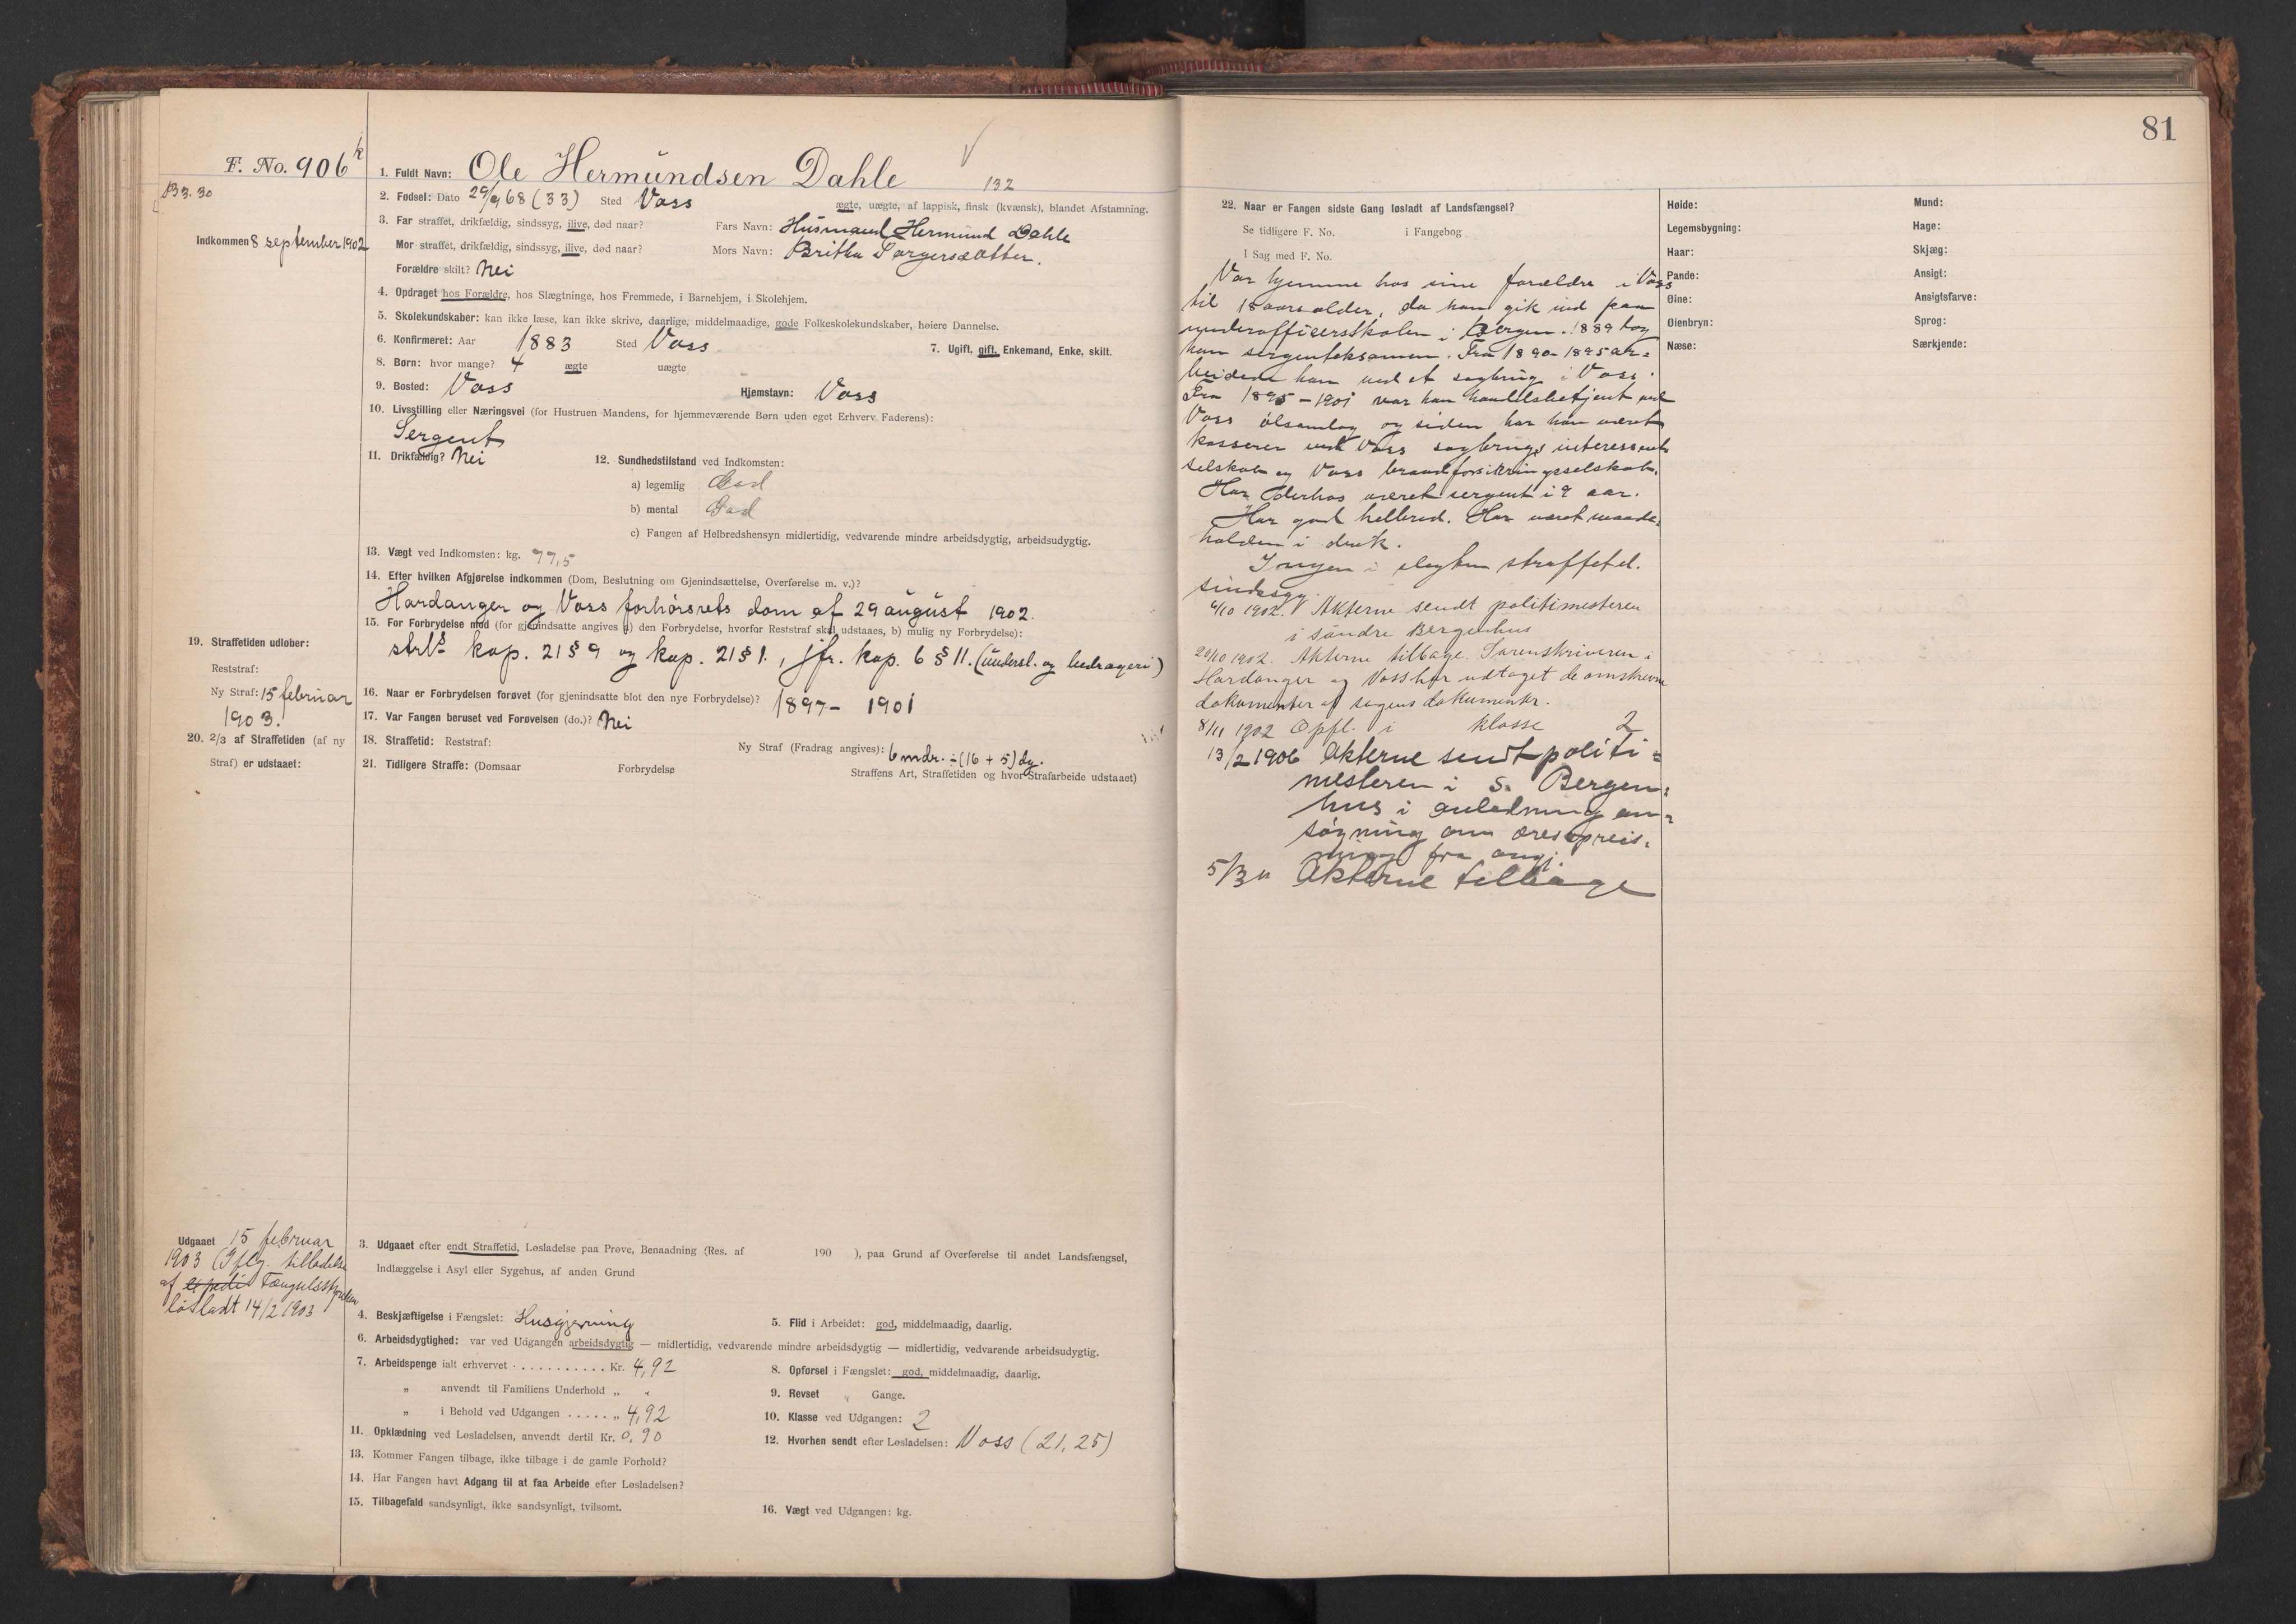 81
F. No. 906 k
B 3. 30
Indkommen 8 september 1902
1. Fuldt Navn: Ole Hermundsen Dahle
132
2. Fødsel: Dato 29/9 68 (33) Sted Voss
ægte, uægte, af lappisk, finsk (kvænsk), blandet Afstamning.
3. Far straffet, drikfældig, sindssyg, ilive, død naar? Fars Navn: Husmand Hermund Dahle
Mor straffet, drikfældig, sindssyg, ilive, død naar? Mors Navn: Britha
Forældre skilt? Nei
4. Opdraget hos Forældre, hos Slægtninge, hos Fremmede, i Barnehjem, i Skolehjem.
5. Skolekundskaber: kan ikke læse, kan ikke skrive, daarlige, middelmaadige, gode Folkeskolekundskaber, høiere Dannelse.
6. Konfirmeret: Aar 1883 Sted Voss 7. Ugift, gift, Enkemand, Enke, skilt.
8. Børn: hvor mange? 4 ægte uægte
9. Bosted: Voss Hjemstavn: Voss
10. Livsstilling eller Næringsvei (for Hustruen Mandens, for hjemmeværende Børn uden eget Erhverv Faderens):
Sergent
11. Drikfældig? Nei 12. Sundhedstilstand ved Indkomsten:
a) legemlig God
b) mental God
c) Fangen af Helbredshensyn midlertidig, vedvarende mindre arbeidsdygtig, arbeidsudygtig.
13. Vægt ved Indkomsten: kg. 77,5
14. Efter hvilken Afgjørelse indkommen (Dom, Beslutning om Gjenindsættelse, Overførelse m. v.)?
Hardanger og Voss forhørsrets dom af 29 august 1902.
15. For Forbrydelse mod (for gjenindsatte angives a) den Forbrydelse, hvorfor Reststraf skal udstaaes, b) mulig ny Forbrydelse):
strl's kap. 21 § 9 og kap. 21 § 1., jfr. kap. 6 § 11. (undersl. og bedrageri)
19. Straffetiden udløber:
Reststraf:
Ny Straf: 15 februar
1903.
16. Naar er Forbrydelsen forøvet (for gjenindsatte blot den nye Forbrydelse)? 1897 - 1901
17. Var Fangen beruset ved Forøvelsen (do.)? Nei
20. 2/3 af Straffetiden (af ny
Straf) er udstaaet:
18. Straffetid: Reststraf: Ny Straf (Fradrag angives): 6 mdr. ÷ (16 + 5) dg.
21. Tidligere Straffe: (Domsaar Forbrydelse Straffens Art, Straffetiden og hvor Strafarbeide udstaaet)
Udgaaet 15 februar
1903 (Iflg. tilladelse
af expedi Fængselsstyrelsen
løsladt 14/2 1903
3. Udgaaet efter endt Straffetid, Løsladelse paa Prøve, Benaadning (Res. af 190 ), paa Grund af Overførelse til andet Landsfængsel,
Indlæggelse i Asyl eller Sygehus, af anden Grund
4. Beskjæftigelse i Fængslet: Husgjerning 5. Flid i Arbeidet: god, middelmaadig, daarlig.
6. Arbeidsdygtighed: var ved Udgangen arbeidsdygtig — midlertidig, vedvarende mindre arbeidsdygtig — midlertidig, vedvarende arbeidsudygtig.
7. Arbeidspenge ialt erhvervet . . . . . . . . . . . Kr. 4,92 8. Opførsel i Fængslet: god, middelmaadig, daarlig.
„ anvendt til Familiens Underhold „ „ 9. Revset „ Gange.
„ i Behold ved Udgangen . . . . . „ 4,92 10. Klasse ved Udgangen: 2
11. Opklædning ved Løsladelsen, anvendt dertil Kr. 0,90 12. Hvorhen sendt efter Løsladelsen: Voss (21,25)
13. Kommer Fangen tilbage, ikke tilbage i de gamle Forhold?
14. Har Fangen havt Adgang til at faa Arbeide efter Løsladelsen?
15. Tilbagefald sandsynligt, ikke sandsynligt, tvilsomt. 16. Vægt ved Udgangen: kg.
22. Naar er Fangen sidste Gang løsladt af Landsfængsel?
Se tidligere F. No. i Fangebog
I Sag med F. No.
Var hjemme hos sine forældre i Voss
til 18 aars alder, da han gik ind paa
underofficersskolen i Bergen. 1889 tog
han sergenteksamen. Fra 1890-1895 ar-
beidede han ved et sagbrug i Voss.
Fra 1895 - 1901 var han handelsbetjent ved
Voss ølsamlag og siden har han været
kasserer ved Voss sagbrugs interessent-
selskab og Voss brandforsikringsselskab.
Har derhos været sergent i 9 aar.
Har god helbred. Har været maade-
holden i druk.
Ingen i slegten straffet el.
sindssyg.
4/10 1902. Akterne sendt politimesteren
i søndre Bergenhus
20/10 1902. Akterne tilbage. Sorenskriveren i
Hardanger og Voss har udtaget de omskrevne
dokumenter af sagens dokumenter.
8/11 1902 Opfl. i klasse 2
13/2 1906 Akterne sendt politi-
mesteren i S. Bergen-
hus i anledning an-
søgning om æresopreis-
ning fra ang.
5/3 " Akterne tilbage
Høide:
Legemsbygning:
Haar:
Pande:
Øine:
Øienbryn:
Næse:
Mund:
Hage:
Skjæg:
Ansigt:
Ansigtsfarve:
Sprog:
Særkjende: